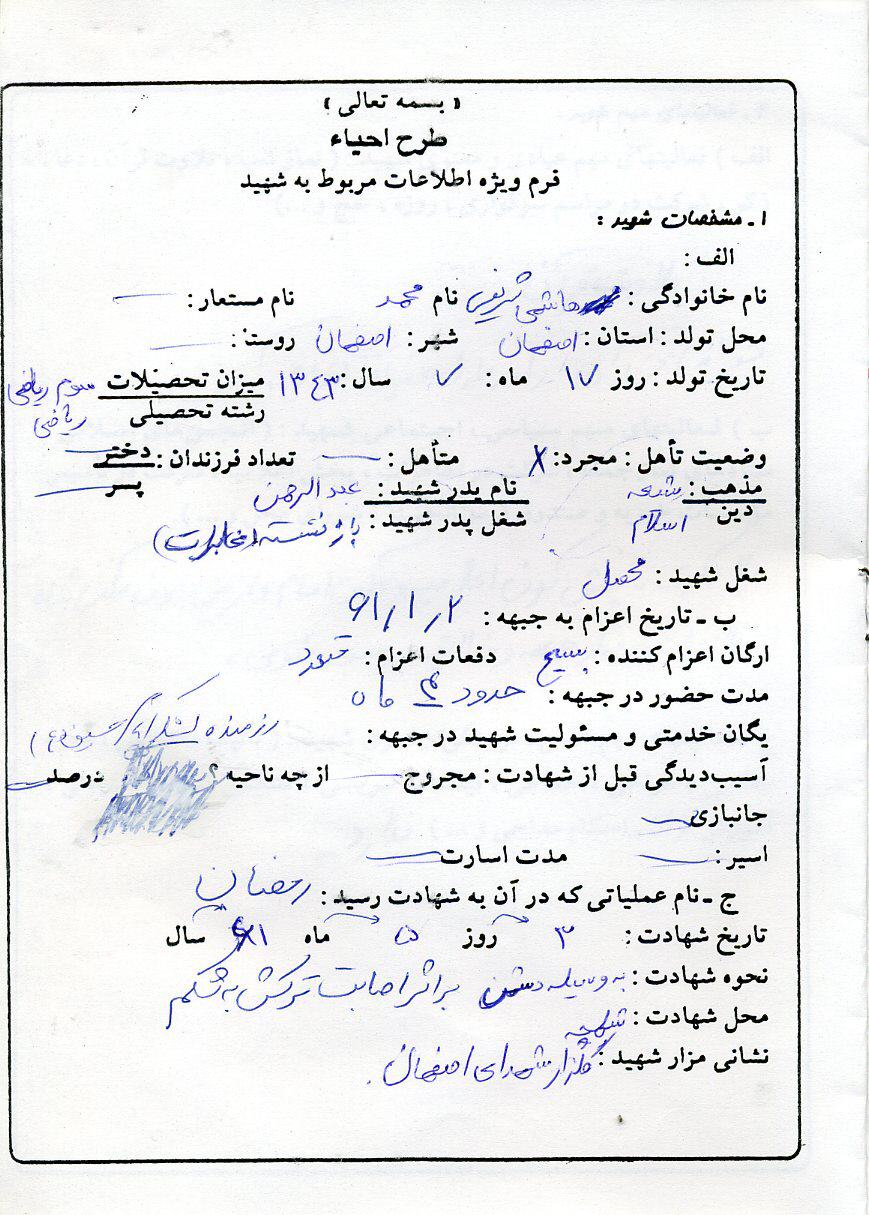 ( بسمه تعالی )
طرح احیاء
فرم ویژه اطلاعات مربوط به شهید
۱ ـ مشخصات شهید :
الف :
نام خانوادگی : هاشمی شریفی نام محمد نام مستعار : —
محل تولد : استان : اصفهان شهر : اصفهان روستا : —
تاریخ تولد : روز ۱۷ ماه : ۷ سال : ۱۳۴۳ میزان تحصیلات سوم ریاضی
رشته تحصیلی ریاضی
وضعیت تأهل : مجرد : x متأهل : — تعداد فرزندان : دختر —
پسر —
مذهب : شیعه نام پدر شهید : عبدالرحمن
دین اسلام شغل پدر شهید : بازنشسته (مخابرات)
شغل شهید : محصل
ب ـ تاریخ اعزام به جبهه : ۶۱/۱/۲
ارگان اعزام کننده : بسیج دفعات اعزام :
مدت حضور در جبهه : حدود ۴ ماه
یگان خدمتی و مسئولیت شهید در جبهه : رزمنده لشکر
آسیب‌دیدگی قبل از شهادت : مجروح — از چه ناحیه ؟ درصد —
جانبازی —
اسیر : — مدت اسارت —
ج ـ نام عملیاتی که در آن به شهادت رسید : رمضان
تاریخ شهادت : ۳ روز ۵ ماه ۶۱ سال
نحوه شهادت : به وسیله دشمن بر اثر اصابت ترکش به شکم
محل شهادت : شلمچه
نشانی مزار شهید : گلزار شهدای اصفهان .